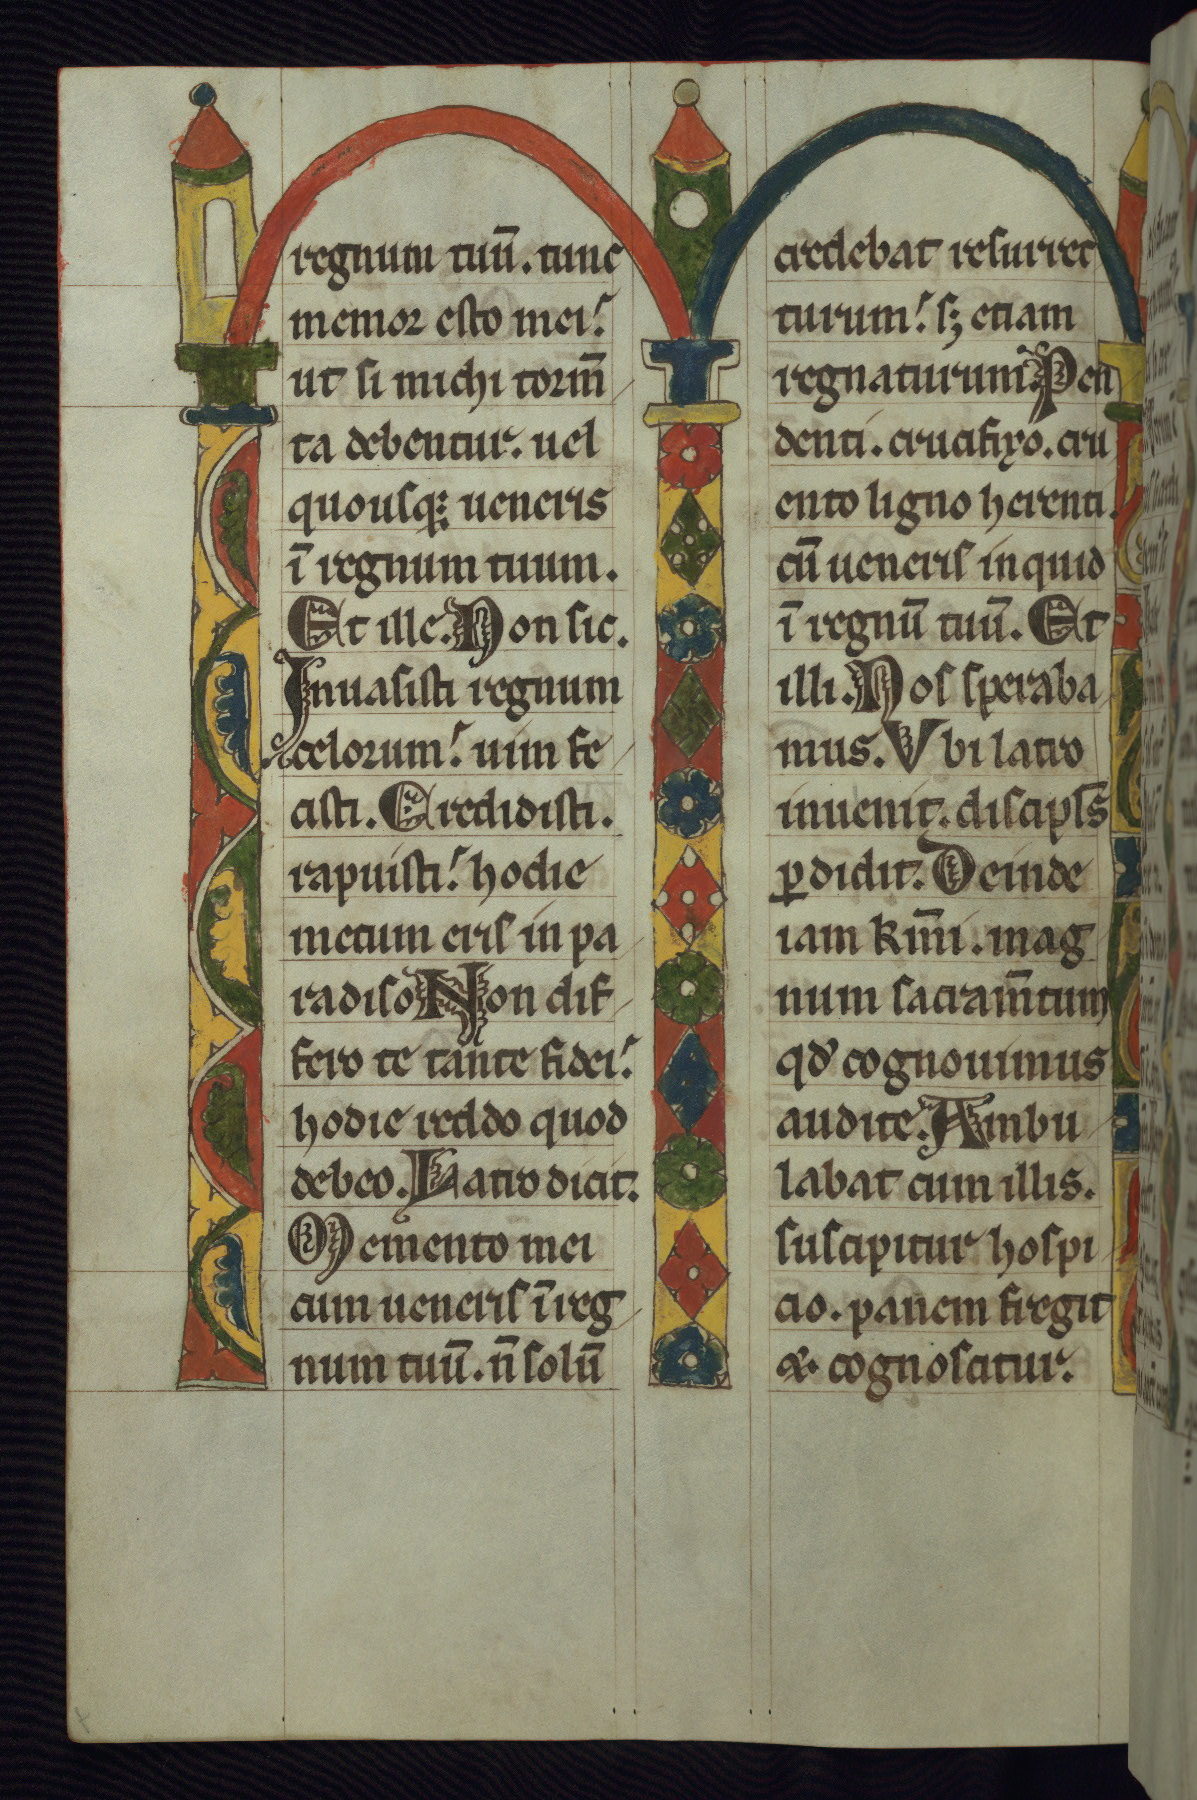 regnum tuū. tunc
memor esto mei.
ut si michi torm̄
ta debentur. uel
quousq; ueneris
ī regnum tuum.
Et ille. Non sic.
Inuasisti regnum
celorum. uim fe
cisti. Credidisti.
rapuisti. hodie
mecum eris in pa
radiso. Non dif
fero te tante fidei.
hodie reddo quod
debeo. Latro dicit.
Memento mei
cum ueneris ī reg
num tuū. n̄ solū
credebat resurrec
turum. sꝫ etiam
regnaturum. Pen
denti. crucifixo. cru
ento ligno herenti.
cū ueneris inquid
ī regnū tuū. Et
illi. Nos speraba
mus. Vbi latro
inuenit. discipl̄s
ꝑdidit. Deinde
iam km̄i. mag
num sacram̄tum
qd̓ cognouimus
audite. Ambu
labat cum illis.
suscipitur hospi
cio. panem fregit
&. cognoscitur.